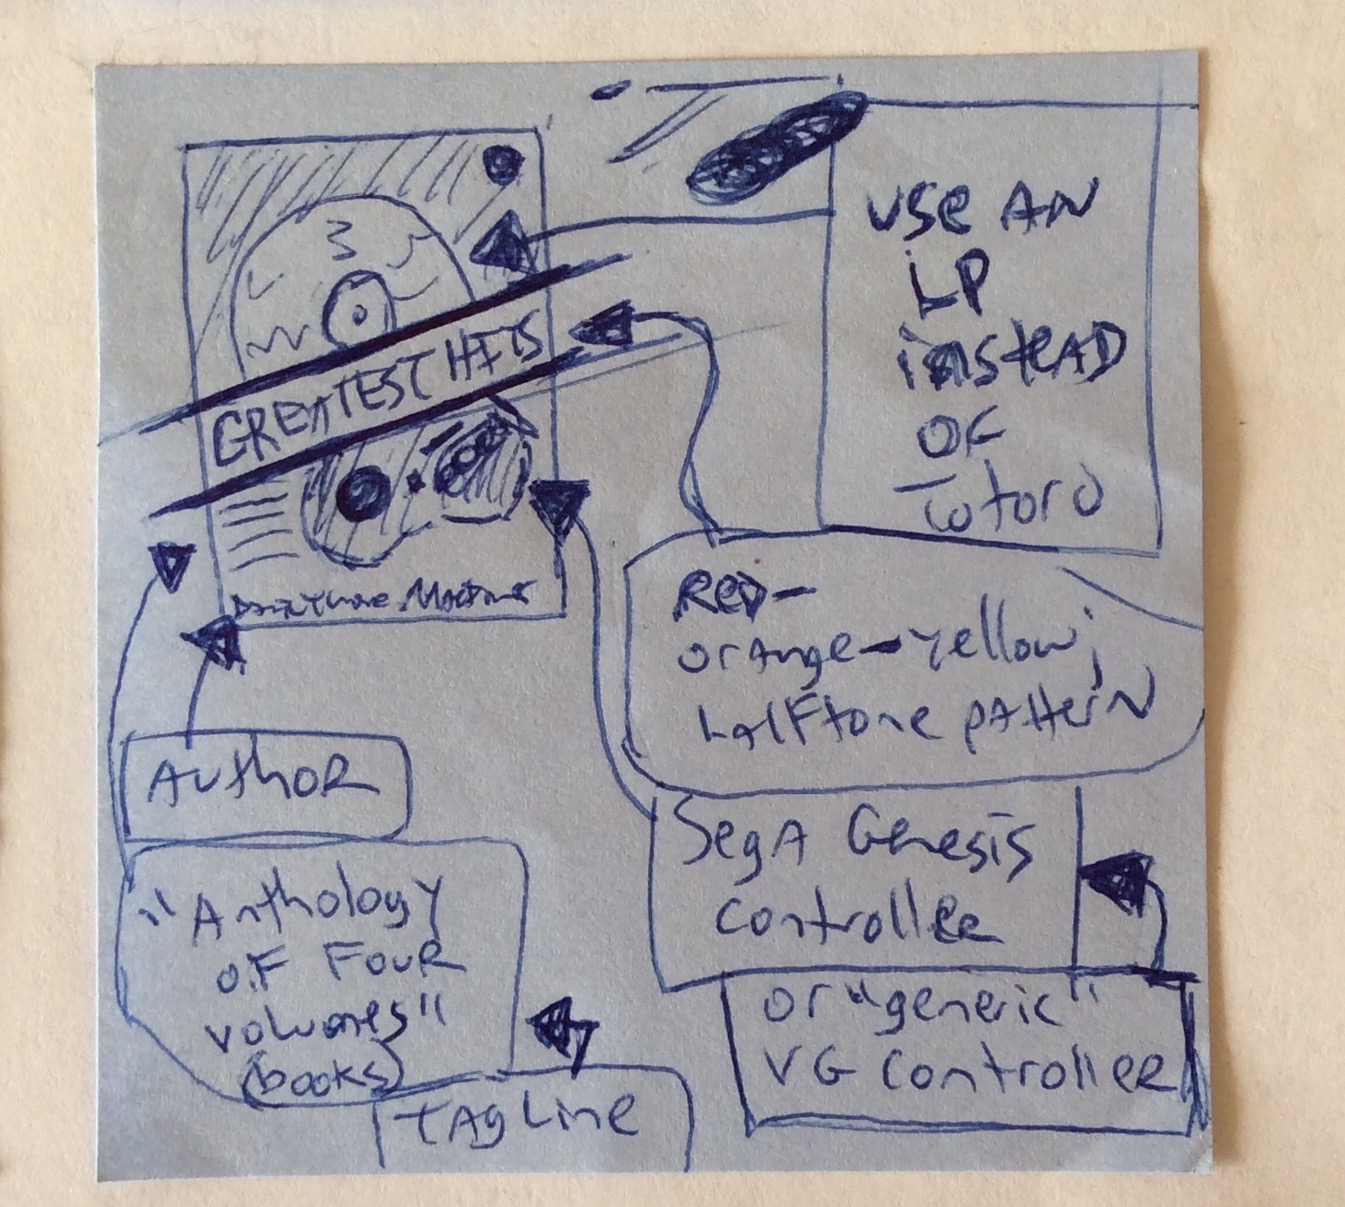 GREATEST HITS
USE AN
LP
iNSTEAD
OF
Totoro
RED-
orange-yellow;
halftone pattern
AuthoR
"Anthology
of FOUR
volumes"
(books)
TAgLine
SegA Genesis
controller
or "generic"
VG Controller